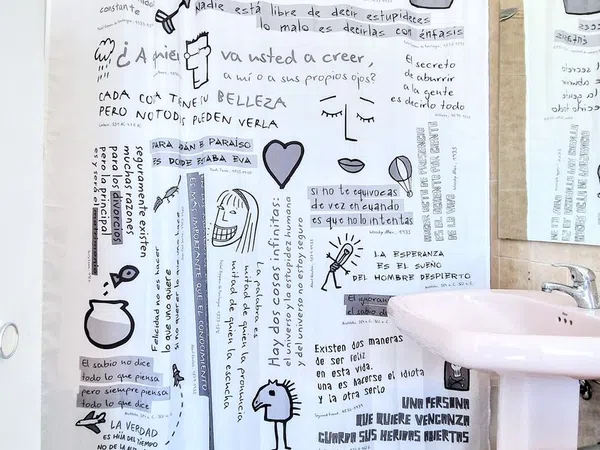 constante
Nadie está libre de decir estupideces
lo malo es decirlas con énfasis
¿A quién va usted a creer,
a mí o a sus propios ojos?
El secreto
de aburrir
a la gente
es decirlo todo
CADA COSA TIENE SU BELLEZA
PERO NO TODOS PUEDEN VERLA
PARA ADÁN EL PARAÍSO
ES DONDE ESTABA EVA
seguramente existen
muchas razones
para los divorcios
pero la principal
es y será el
si no te equivocas
de vez en cuando
es que no lo intentas
Woody Allen, 1935
LA ESPERANZA
ES EL SUEÑO
DEL HOMBRE DESPIERTO
Felicidad no es hacer
lo que uno quiere
ES MÁS IMPORTANTE QUE EL CONOCIMIENTO
La palabra es
mitad de quien la pronuncia
mitad de quien la escucha
Hay dos cosas infinitas:
el universo y la estupidez humana
y del universo no estoy seguro
El ignorante
el sabio
Existen dos maneras
de ser feliz
en esta vida.
una es hacerse el idiota
y la otra serlo
El sabio no dice
todo lo que piensa
pero siempre piensa
todo lo que dice
LA VERDAD
ES HIJA DEL TIEMPO
NO DE LA
UNA PERSONA
QUE QUIERE VENGANZA
GUARDA SUS HERIDAS ABIERTAS